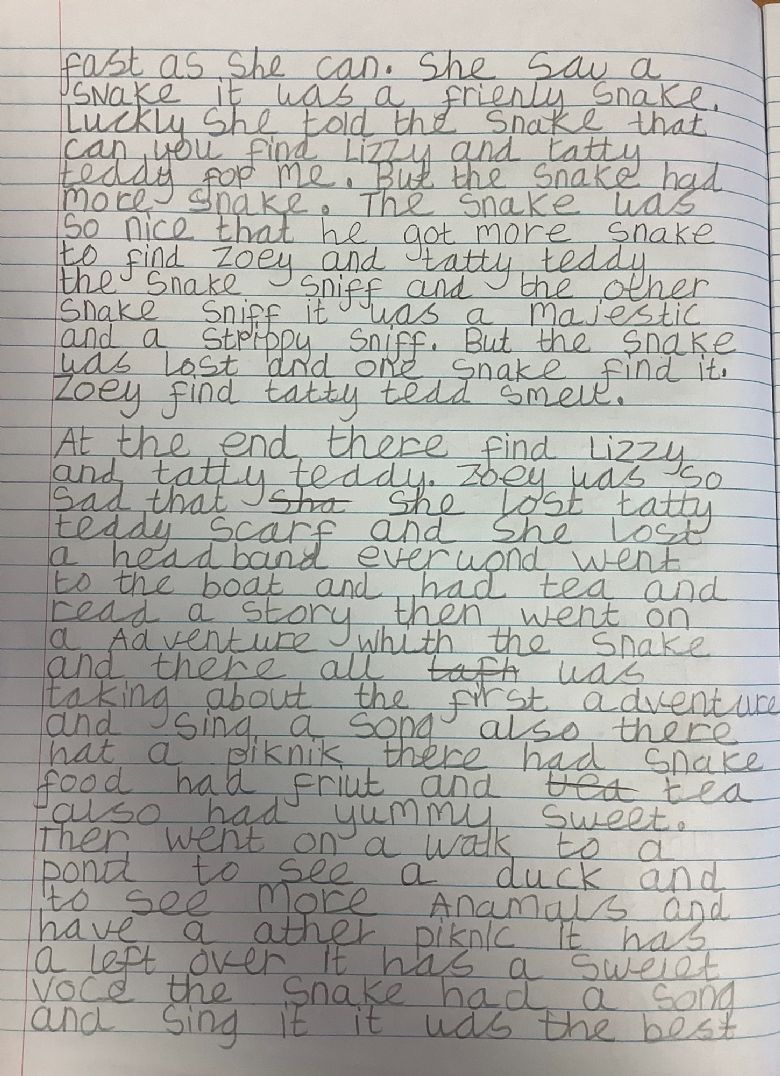 fast as she can. She saw a
snake it was a frienly snake.
Luckly she told the snake that
can you find Lizzy and tatty
teddy for me. But the snake had
more snake. The snake was
so nice that he got more snake
to find Zoey and tatty teddy
the snake sniff and the other
snake sniff it was a majestic
and a strippy sniff. But the snake
was lost and one snake find it.
Zoey find tatty tedd smell.
At the end there find Lizzy
and tatty teddy. Zoey was so
sad that sha she lost tatty
teddy scarf and she lost
a headband everuond went
to the boat and had tea and
read a story then went on
a Adventure whith the snake
and there all was
taking about the first adventure
and sing a song also there
hat a piknik there had snake
food had friut and tea
also had yummy sweet.
Ther went on a walk to a
pond to see a duck and
to see more Anamals and
have a ather piknic it has
a left over it has a sweiet
voce the snake had a song
and sing it it was the best